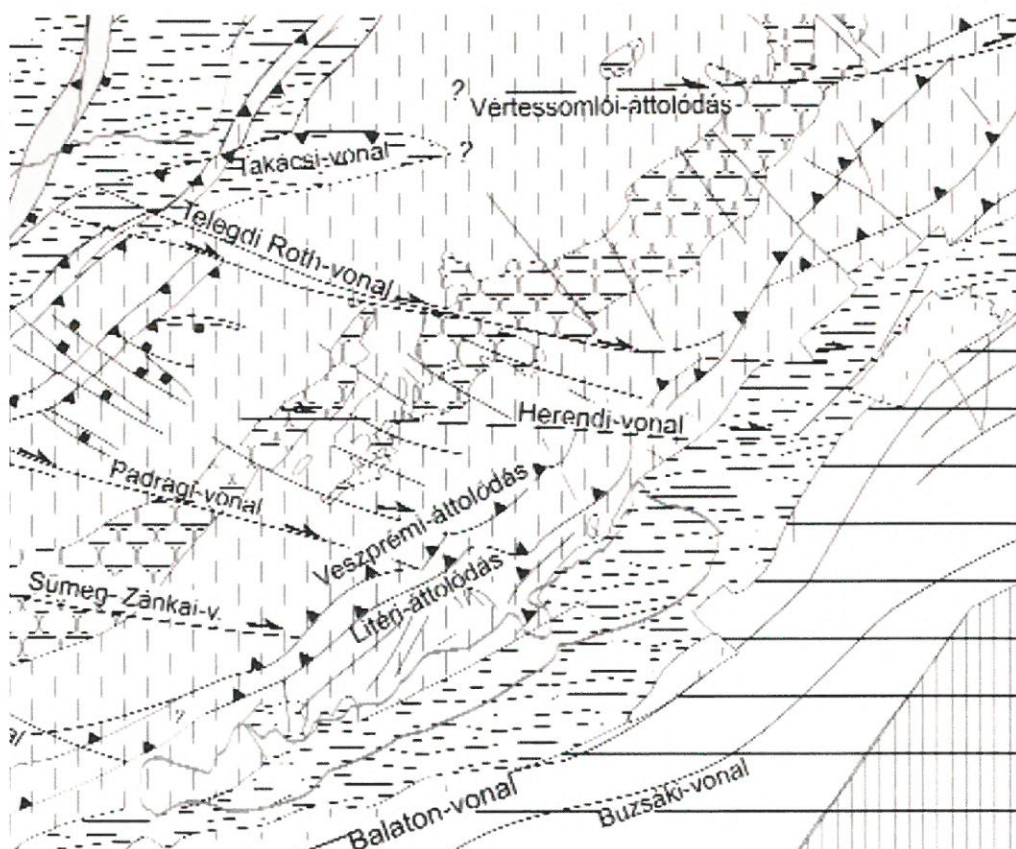 ?
Vértessomlói-áttolódás
Takácsi-vonal
?
Telegdi Roth-vonal
Herendi-vonal
Padragi-vonal
Veszprémi-áttolódás
Litéri-áttolódás
Sümeg- Zánkai-v.
Balaton-vonal
Buzsáki-vonal